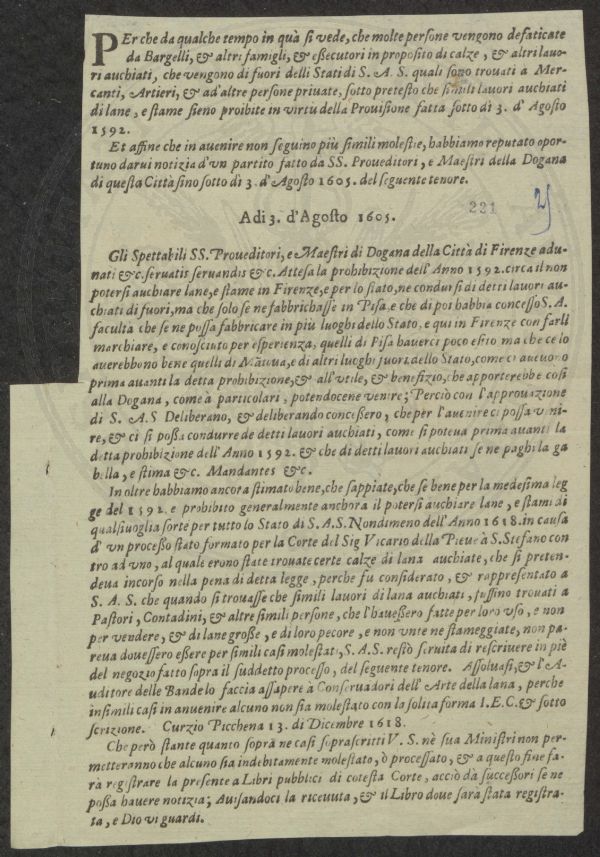 PEr che da qualche tempo in quà ſi vede, che molte perſone vengono defaticate
da Bargelli, & altri famigli, & eßecutori in propoſito di calze, & altri lauo-
ri auchiati, che vengono di fuori delli Stati di S. A. S. quali ſono trouati a Mer-
canti, Artieri, & ad'altre perſone priuate, ſotto preteſto che ſimili lauori auchiati
di lane, e ſtame ſieno proibite in virtu della Prouiſione fatta ſotto dì 3. d' Agoſto
1592.
Et affine che in auenire non ſeguino più ſimili moleſtie, habbiamo reputato opor-
tuno darui notizia d'vn partito fatto da SS. Proueditori, e Maeſtri della Dogana
di queſta Città ſino ſotto dì 3. d'Agoſto 1605. del ſeguente tenore.
231
25
A di 3. d'Agoſto 1605.
Gli Spettabili SS. Proueditori, e Maeſtri di Dogana della Città di Firenze adu-
nati &c. ſeruatis ſeruandis &c. Atteſa la prohibizione dell' Anno 1592. circa il non
poterſi auchiare lane, e ſtame in Firenze, e per lo ſtato, ne condurſi di detti lauori au-
chiati di fuori, ma che ſolo ſe ne fabbrichaſſe in Piſa, e che di poi habbia conceſſo S. A.
facultà che ſe ne poſſa fabbricare in più luoghi dello Stato, e qui in Firenze con farli
marchiare, e conoſciuto per eſperienza, quelli di Piſa hauerci poco eſito ma che ce lo
auerebbono bene quelli di Mātua, e di altri luoghi fuori dello Stato, come ci aueuono
prima auanti la detta prohibizione, & all'vtile, & benefizio, che apporterebbe coſi
alla Dogana, come à particolari, potendocene venire; Perciò con l'approuazione
di S. A.S Deliberano, & deliberando conceßero, che pèr l'auenire ci poſſa veni-
re, & ci ſi poßa condurre de detti lauori auchiati, come ſi poteua prima auanti la
detta prohibizione dell' Anno 1592. & che di detti lauori auchiati ſe ne paghi la ga
bella, e ſtima &c. Mandantes &c.
In oltre habbiamo ancora ſtimato bene, che ſappiate, che ſe bene per la medeſima leg
ge del 1592. e prohibito generalmente anchora il poterſi auchiare lane, e ſtami di
qualſiuoglia ſorte per tutto lo Stato di S.A.S. Nondimeno dell'Anno 1618. in cauſa
d' vn proceßo ſtato formato per la Corte del Sig Vicario della Pieue à S. Stefano con
tro ad vno, al quale erono ſtate trouate certe calze di lana auchiate, che ſi preten-
deua incorſo nella pena di detta legge, perche fu conſiderato, & rappreſentato a
S. A. S. che quando ſi trouaſſe che ſimili lauori di lana auchiati, fuſſino trouati a
Paſtori, Contadini, & altre ſimili perſone, che l'haueßero fatte per loro vſo, e non
per vendere, & di lane große, e di loro pecore, e non vnte ne ſtameggiate, non pa-
reua doueſſero eßere per ſimili caſi moleſtati, S.A.S. reſtò ſeruita di reſcriuere in piè
del negozio fatto ſopra il ſuddetto proceſſo, del ſeguente tenore. Aſſoluaſi, & l'A-
uditore delle Bande lo faccia aſſapere à Conſeruadori dell' Arte della lana, perche
in ſimili caſi in auuenire alcuno non ſia moleſtato con la ſolita forma I.E.C. & ſotto
ſcrizione. Curzio Picchena 13. di Dicembre 1618.
Che però ſtante quanto ſopra ne caſi ſopraſcritti V. S. nè ſua Miniſtri non per-
metteranno che alcuno ſia indebitamente moleſtato, ò proceſſato, & a queſto fine fa-
rà regiſtrare la preſente a Libri pubblici di coteſta Corte, acciò da ſucceſſori ſe ne
poßa hauere notizia; Auiſandoci la riceuuta, & il Libro doue ſarà ſtata regiſtra-
ta, e Dio vi guardi.